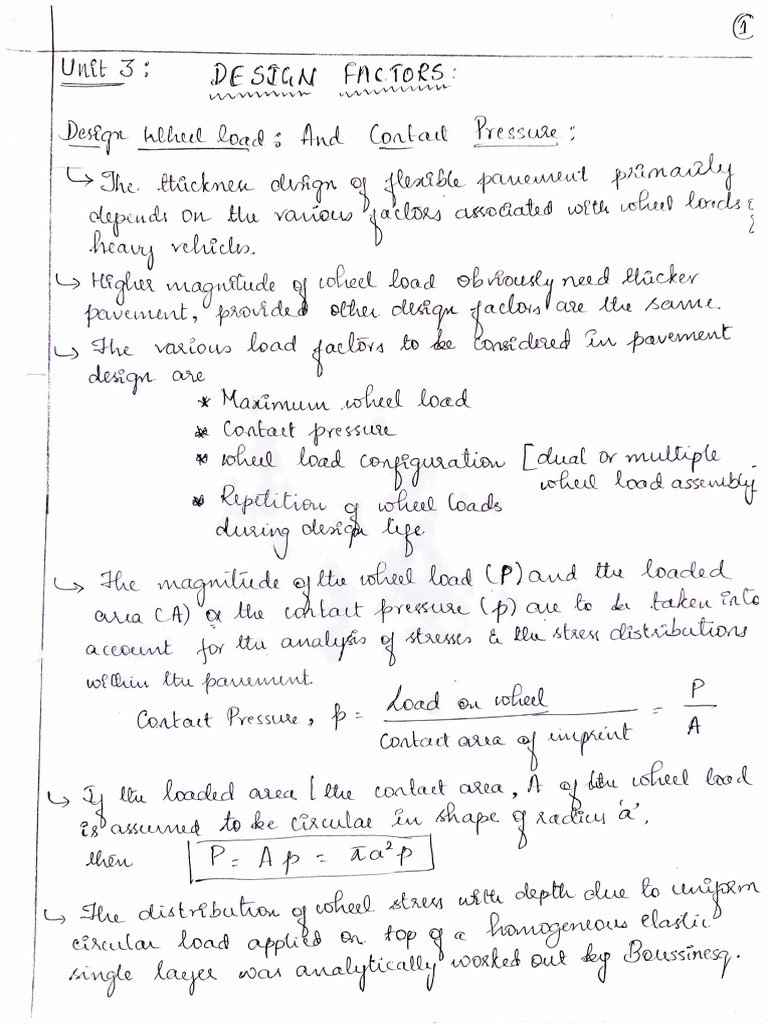 1
Unit 3: DESIGN FACTORS:
Design Wheel load: And Contact Pressure:
↳ The thickness design of flexible pavement primarily
depends on the various factors associated with wheel loads &
heavy vehicles.
↳ Higher magnitude of wheel load obviously need thicker
pavement, provided other design factors are the same.
↳ The various load factors to be considered in pavement
design are
* Maximum wheel load
* Contact pressure
* Wheel load configuration [dual or multiple
wheel load assembly
* Repetition of wheel loads
during design life
↳ The magnitude of the wheel load (P) and the loaded
area (A) or the contact pressure (p) are to be taken into
account for the analysis of stresses & the stress distributions
within the pavement.
Contact Pressure, p = Load on wheel / Contact area of imprint = P / A
↳ If the loaded area / the contact area, A of the wheel load
is assumed to be circular in shape of radius 'a',
then P = A p = πa²p
↳ The distribution of wheel stress with depth due to uniform
circular load applied on top of a homogeneous elastic
single layer was analytically worked out by Boussinesq.